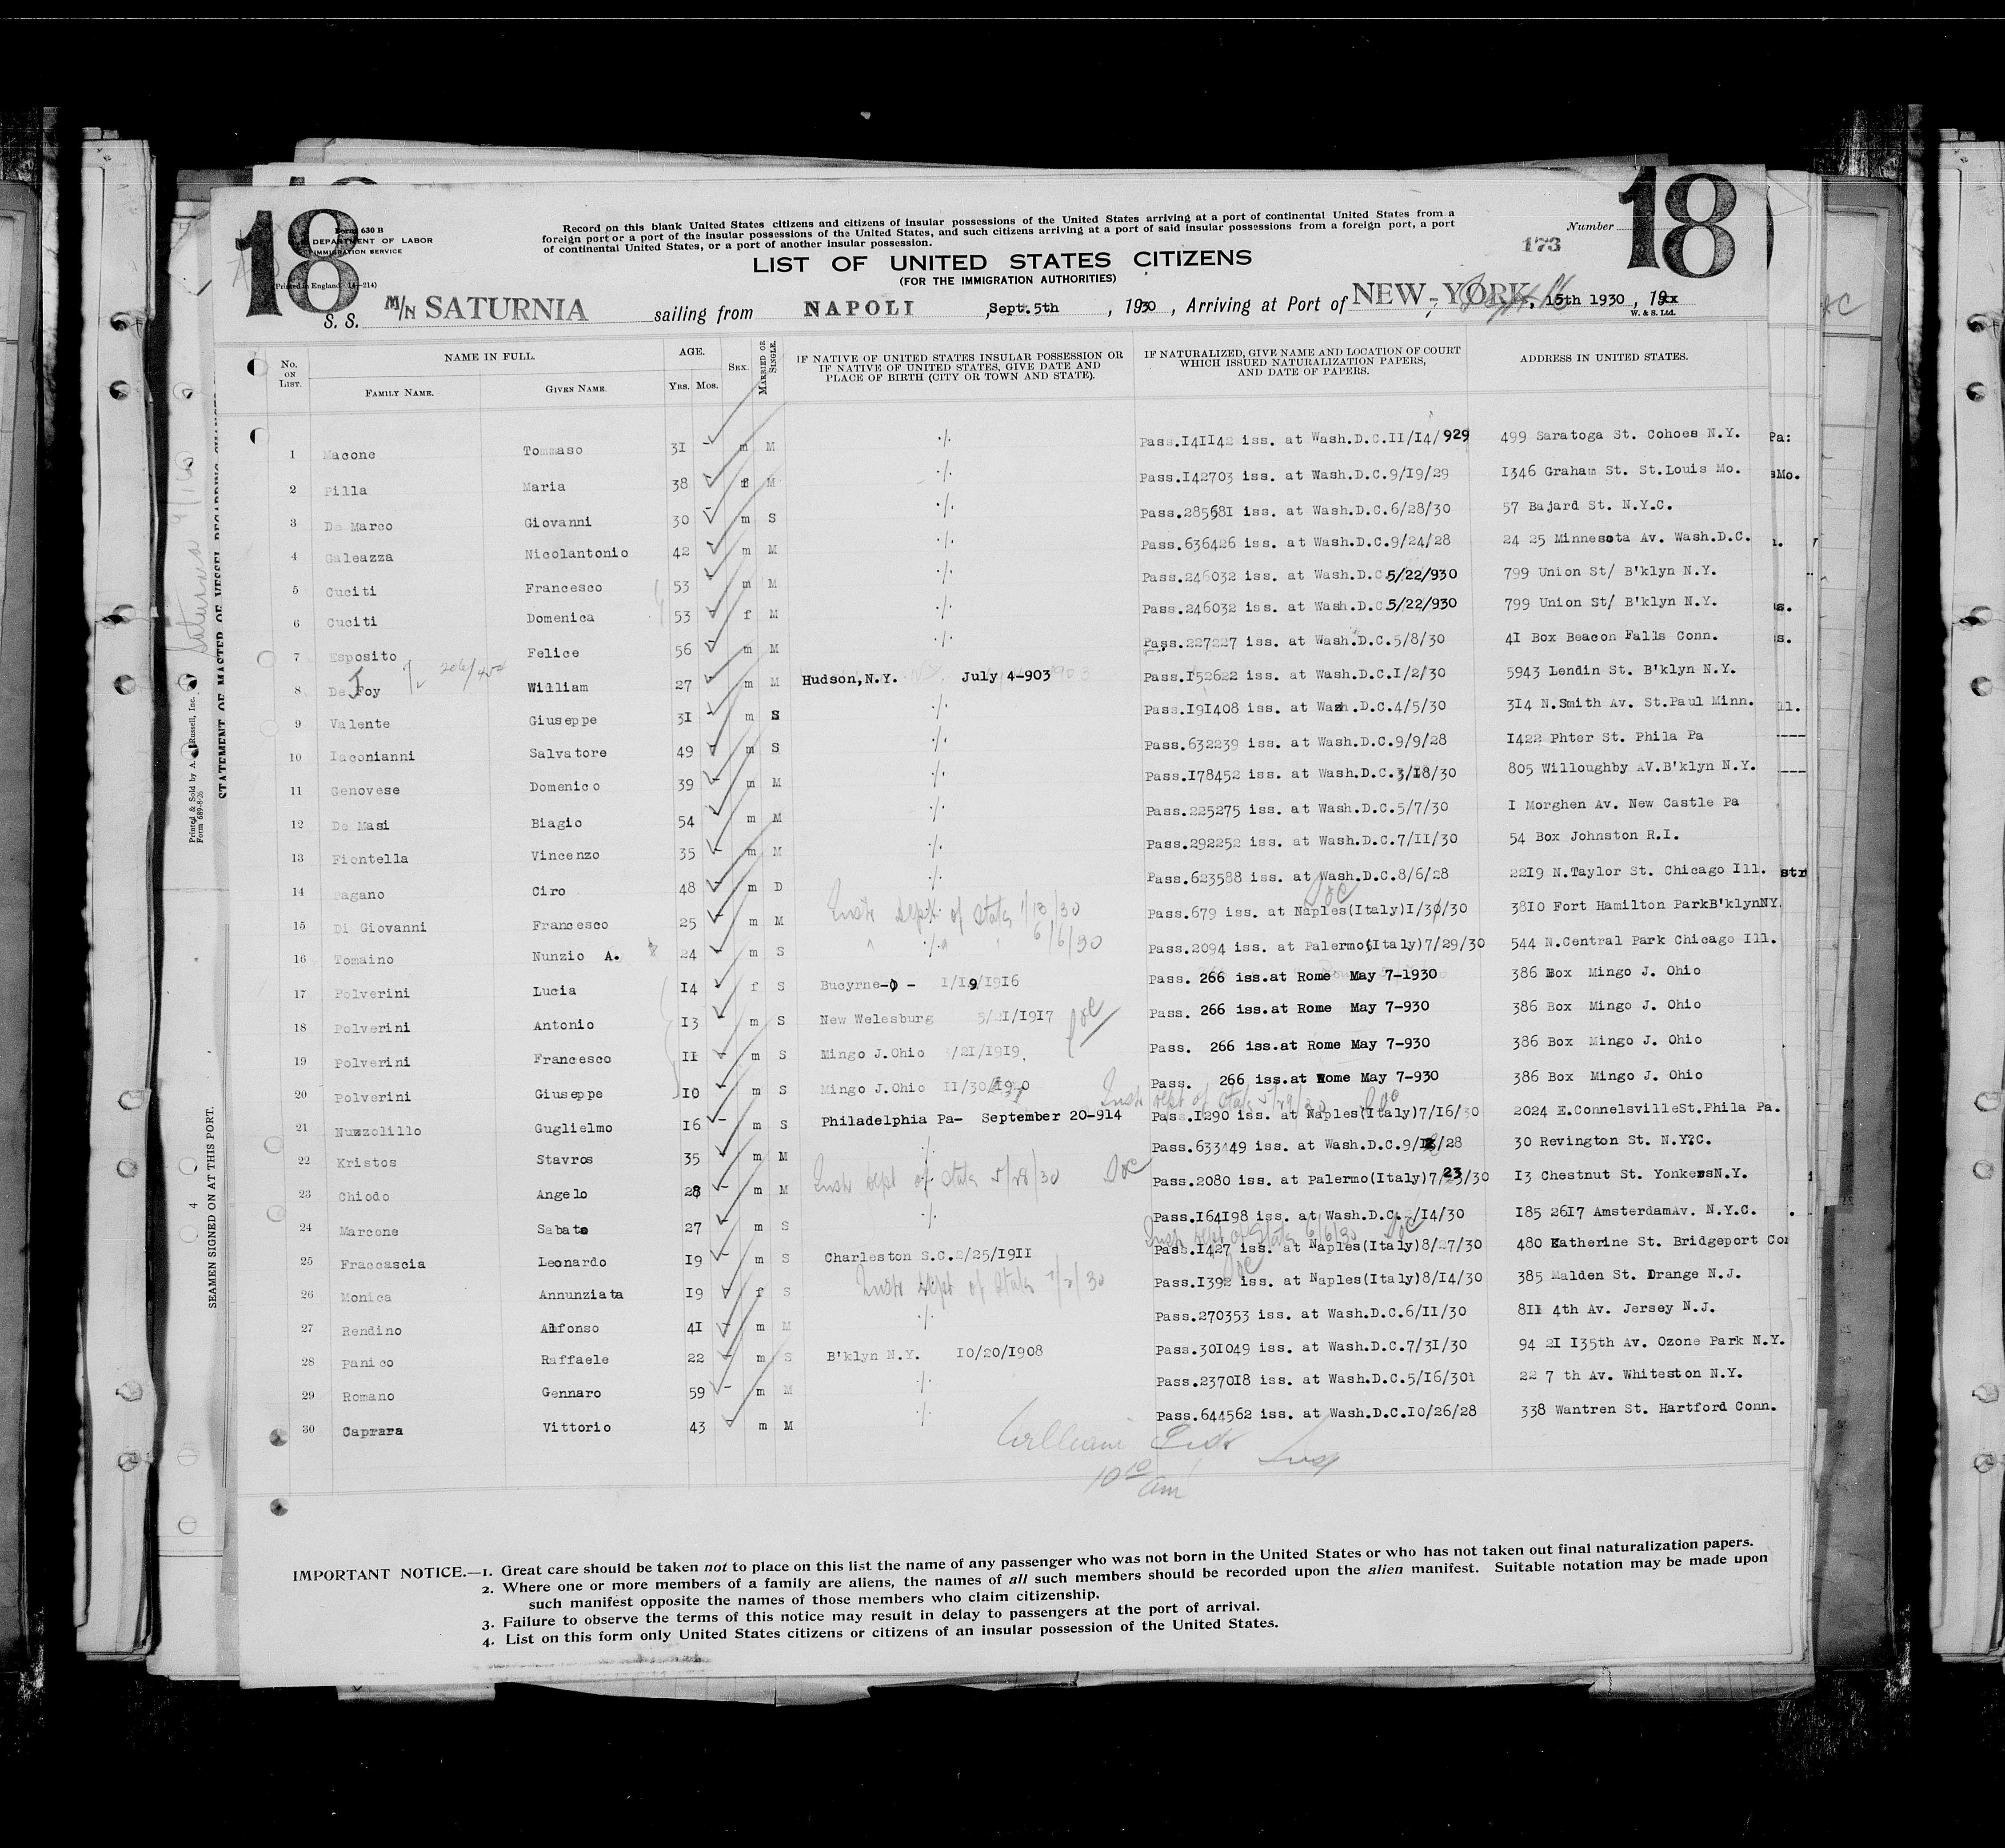 18
18
Form 630 B
DEPARTMENT OF LABOR
IMMIGRATION SERVICE
(Printed in England 14—214)
Record on this blank United States citizens and citizens of insular possessions of the United States arriving at a port of continental United States from a
foreign port or a port of the insular possessions of the United States, and such citizens arriving at a port of said insular possessions from a foreign port, a port
of continental United States, or a port of another insular possession.
Number
173
LIST OF UNITED STATES CITIZENS
(FOR THE IMMIGRATION AUTHORITIES)
S. S. M/N SATURNIA sailing from NAPOLI, Sept. 5th, 1930, Arriving at Port of NEW-YORK, 15th 1930, 19xx
Sept 16
W. & S. Ltd.
No. ON LIST. NAME IN FULL. AGE. SEX. MARRIED OR SINGLE. IF NATIVE OF UNITED STATES INSULAR POSSESSION OR IF NATIVE OF UNITED STATES, GIVE DATE AND PLACE OF BIRTH (CITY OR TOWN AND STATE). IF NATURALIZED, GIVE NAME AND LOCATION OF COURT WHICH ISSUED NATURALIZATION PAPERS, AND DATE OF PAPERS. ADDRESS IN UNITED STATES.
FAMILY NAME. GIVEN NAME. YRS. MOS.
1 Macone Tommaso 31 m M ./. Pass.141142 iss. at Wash.D.C.11/14/929 499 Saratoga St. Cohoes N.Y.
2 Pilla Maria 38 f M ./. Pass.142703 iss. at Wash.D.C.9/19/29 1346 Graham St. St.Louis Mo.
3 De Marco Giovanni 30 m S ./. Pass.285681 iss. at Wash.D.C.6/28/30 57 Bajard St. N.Y.C.
4 Galeazza Nicolantonio 42 m M ./. Pass.636426 iss. at Wash.D.C.9/24/28 24 25 Minnesota Av. Wash.D.C.
5 Cuciti Francesco 53 m M ./. Pass.246032 iss. at Wash.D.C.5/22/930 799 Union St/ B'klyn N.Y.
6 Cuciti Domenica 53 f M ./. Pass.246032 iss. at Wash.D.C.5/22/930 799 Union St/ B'klyn N.Y.
7 Esposito Felice 56 m M ./. Pass.227227 iss. at Wash.D.C.5/8/30 41 Box Beacon Falls Conn.
8 De Foy William 27 m M Hudson,N.Y. July 4-903 Pass.152622 iss. at Wash.D.C.1/2/30 5943 Lendin St. B'klyn N.Y.
9 Valente Giuseppe 31 m S ./. Pass.191408 iss. at Wash.D.C.4/5/30 314 N.Smith Av. St.Paul Minn.
10 Iaconianni Salvatore 49 m S ./. Pass.632239 iss. at Wash.D.C.9/9/28 1422 Phter St. Phila Pa
11 Genovese Domenico 39 m M ./. Pass.178452 iss. at Wash.D.C.3/18/30 805 Willoughby AV.B'klyn N.Y.
12 De Masi Biagio 54 m M ./. Pass.225275 iss. at Wash.D.C.5/7/30 1 Morghen Av. New Castle Pa
13 Fiontella Vincenzo 35 m M ./. Pass.292252 iss. at Wash.D.C.7/11/30 54 Box Johnston R.I.
14 Pagano Ciro 48 m D ./. Pass.623588 iss. at Wash.D.C.8/6/28 2219 N.Taylor St. Chicago Ill.
15 Di Giovanni Francesco 25 m M Instr Dept of State 1/13/30 Pass.679 iss. at Naples(Italy)1/30/30 3810 Fort Hamilton ParkB'klynNY.
16 Tomaino Nunzio A. 24 m S ./. 6/6/30 Pass.2094 iss. at Palermo(Italy)7/29/30 544 N.Central Park Chicago Ill.
17 Polverini Lucia 14 f S Bucyrne-O - 1/19/1916 Pass. 266 iss.at Rome May 7-1930 386 Box Mingo J. Ohio
18 Polverini Antonio 13 m S New Welesburg 5/21/1917 Pass. 266 iss.at Rome May 7-930 386 Box Mingo J. Ohio
19 Polverini Francesco 11 m S Mingo J.Ohio /21/1919 Pass. 266 iss.at Rome May 7-930 386 Box Mingo J. Ohio
20 Polverini Giuseppe 10 m S Mingo J.Ohio 11/30/1920 Pass. 266 iss.at Rome May 7-930 386 Box Mingo J. Ohio
Instr Dept of State
21 Nuzzolillo Guglielmo 16 m S Philadelphia Pa- September 20-914 Pass.1290 iss. at Naples(Italy)7/16/30 2024 E.ConnelsvilleSt.Phila Pa.
22 Kristos Stavros 35 m M ./. Pass.633449 iss. at Wash.D.C.9/18/28 30 Revington St. N.Y.C.
23 Chiodo Angelo 28 m M Instr Dept of State 5/28/30 Pass.2080 iss. at Palermo(Italy)7/23/30 13 Chestnut St. YonkersN.Y.
24 Marcone Sabato 27 m S ./. Pass.164198 iss. at Wash.D.C. /14/30 185 2617 AmsterdamAv. N.Y.C.
Instr Dept of State 6/6/30
25 Fraccascia Leonardo 19 m S Charleston S.C.2/25/1911 Pass.1427 iss. at Naples(Italy)8/27/30 480 Katherine St. Bridgeport Con
26 Monica Annunziata 19 f S Instr Dept of State 7/2/30 Pass.1392 iss. at Naples(Italy)8/14/30 385 Malden St. Orange N.J.
27 Rendino Alfonso 41 m M ./. Pass.270353 iss. at Wash.D.C.6/11/30 811 4th Av. Jersey N.J.
28 Panico Raffaele 22 m S B'klyn N.Y. 10/20/1908 Pass.301049 iss. at Wash.D.C.7/31/30 94 21 135th Av. Ozone Park N.Y.
29 Romano Gennaro 59 m M ./. Pass.237018 iss. at Wash.D.C.5/16/301 22 7 th Av. Whiteston N.Y.
30 Caprara Vittorio 43 m M ./. Pass.644562 iss. at Wash.D.C.10/26/28 338 Wantren St. Hartford Conn.
William Insp
10 10 am
IMPORTANT NOTICE.—1. Great care should be taken not to place on this list the name of any passenger who was not born in the United States or who has not taken out final naturalization papers.
2. Where one or more members of a family are aliens, the names of all such members should be recorded upon the alien manifest. Suitable notation may be made upon
such manifest opposite the names of those members who claim citizenship.
3. Failure to observe the terms of this notice may result in delay to passengers at the port of arrival.
4. List on this form only United States citizens or citizens of an insular possession of the United States.
Saturnia 9/16
Form 689-8-26
SEAMEN SIGNED ON AT THIS PORT.